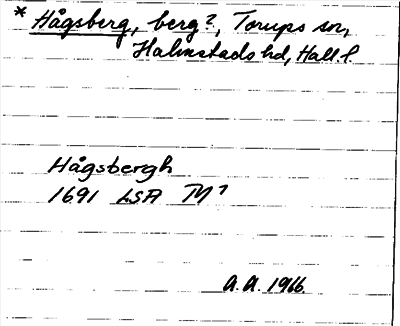 * Hågsberg, berg?, Torups sn,
Halmstads hd, Hall. l.
Hågsbergh
1691 LSA M⁷
A.A. 1966.